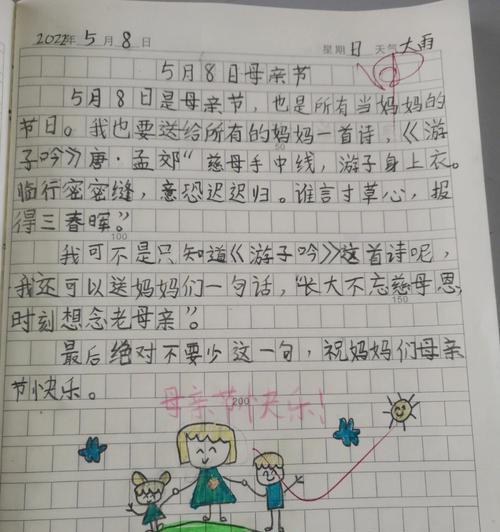 2022年5月8日 星期日 天气大雨
5月8日母亲节
5月8日是母亲节，也是所有当妈妈的
节日。我也要送给所有的妈妈一首诗，《游
子吟》唐·孟郊“慈母手中线，游子身上衣。
临行密密缝，意恐迟迟归。谁言寸草心，报
得三春晖。”
我可不是只知道《游子吟》这首诗呢，
我还可以送妈妈们一句话，“长大不忘慈母恩，
时刻想念老母亲”。
最后绝对不要少这一句，祝妈妈们母亲
节快乐。
母亲节快乐！
50
100
150
200